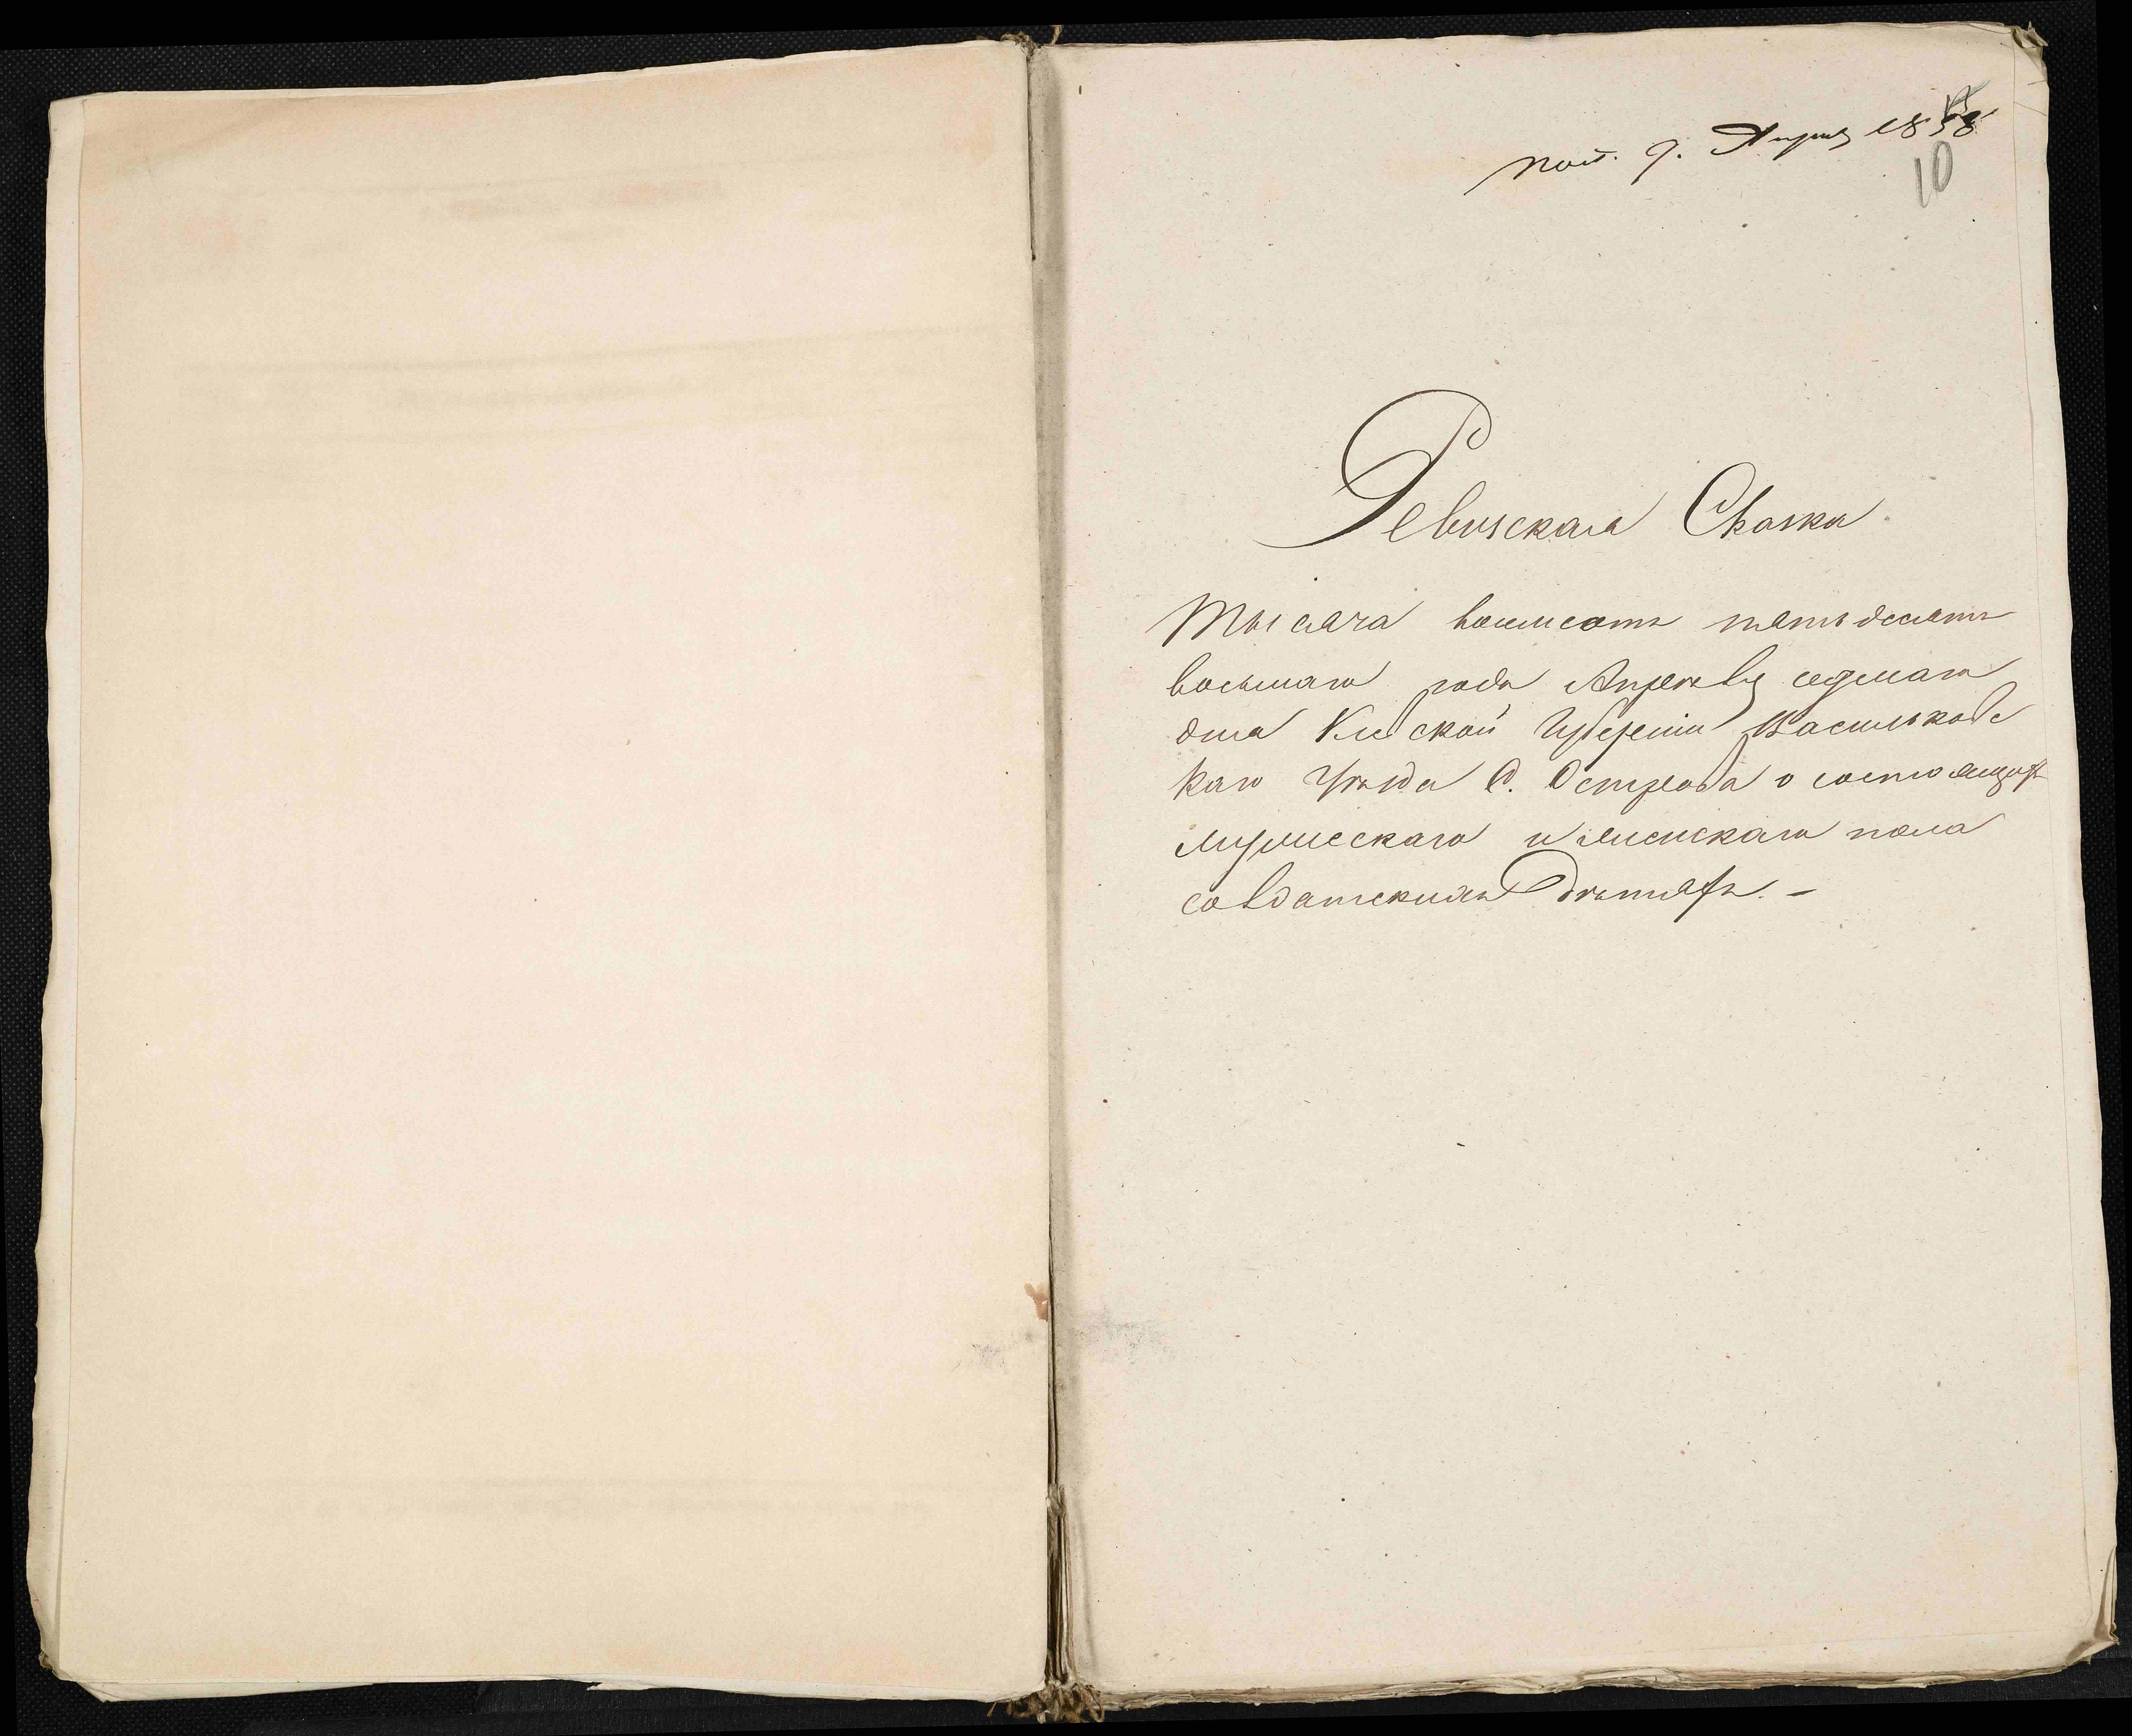 пол. 9. Апреля 1858
10
Ревизская Сказка
Тысяча восемсотъ пятьдесятъ
восьмаго года Апреля седмаго
дня Киевской Губерніи Васильковс
каго Уѣзда С. Острова о состоящихъ
мужескаго и женскаго пола
солдатскихъ дѣтяхъ. –